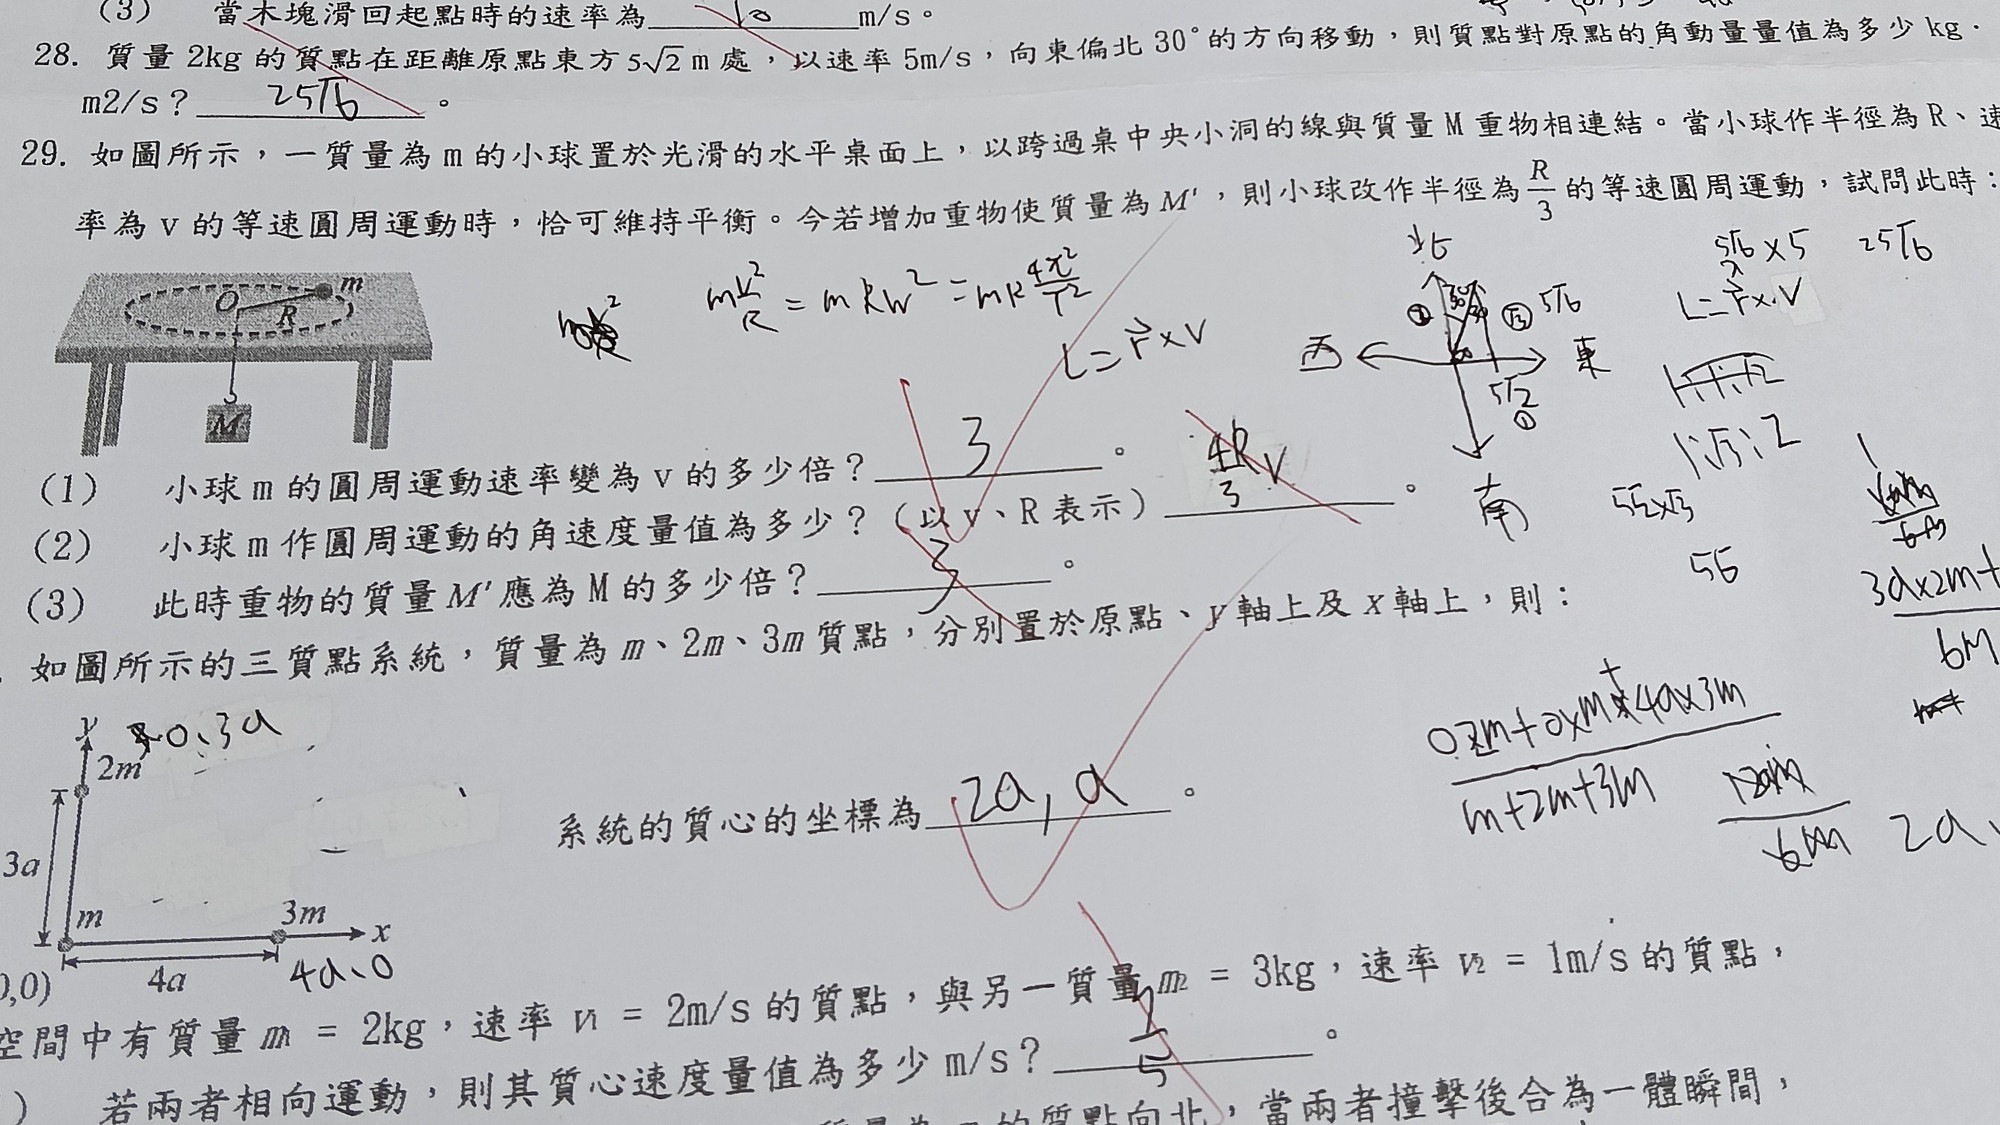 (3) 當木塊滑回起點時的速率為 10 m/s。
28. 質量 2kg 的質點在距離原點東方 5√2 m 處，以速率 5m/s，向東偏北 30°的方向移動，則質點對原點的角動量量值為多少 kg．
m2/s？ 25√6 。
29. 如圖所示，一質量為 m 的小球置於光滑的水平桌面上，以跨過桌中央小洞的線與質量 M 重物相連結。當小球作半徑為 R、速
率為 v 的等速圓周運動時，恰可維持平衡。今若增加重物使質量為 M'，則小球改作半徑為 R/3 的等速圓周運動，試問此時：
O R m
M
mv²/R = mRw² = mR 4π²/T²
L = r⃗ × V
北
西 東
南
5√6
5√2
5√6 × 5 25√6
L = r⃗ × V
1:√3:2
5√2×√3
5√6
(1) 小球 m 的圓周運動速率變為 v 的多少倍？ 3 。
(2) 小球 m 作圓周運動的角速度量值為多少？（以 v、R 表示） 4R/3 v 。
(3) 此時重物的質量 M' 應為 M 的多少倍？ 3 。
如圖所示的三質點系統，質量為 m、2m、3m 質點，分別置於原點、y 軸上及 x 軸上，則：
y 0、3a
2m
3a
m 3m x
0,0) 4a 4a、0
系統的質心的坐標為 2a, a 。
3a×2m+
6m
0×2m+0×m+4a×3m
m+2m+3m
12am
6m
2a、
空間中有質量 m1 = 2kg，速率 v1 = 2m/s 的質點，與另一質量 m2 = 3kg，速率 v2 = 1m/s 的質點，
) 若兩者相向運動，則其質心速度量值為多少 m/s？ 7/5 。
的質點向北，當兩者撞擊後合為一體瞬間，